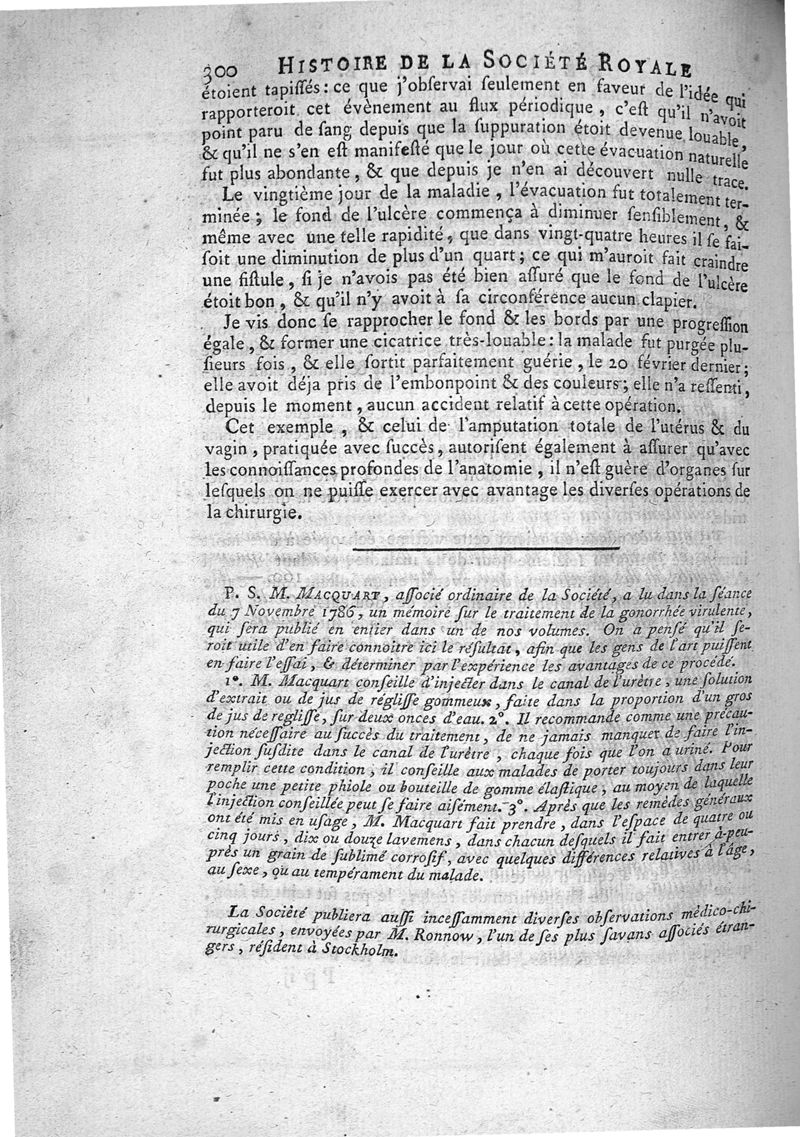 300 HISTOIRE DE LA SOCIÉTÉ ROYALE
étoient tapiſſés : ce que j'obſervai ſeulement en faveur de l'idée qui
rapporteroit cet évènement au flux périodique, c'eſt qu'il n'avoit
point paru de ſang depuis que la ſuppuration étoit devenue louable,
& qu'il ne s'en eſt manifeſté que le jour où cette évacuation naturelle
fut plus abondante, & que depuis je n'en ai découvert nulle trace.
Le vingtième jour de la maladie, l'évacuation fut totalement ter-
minée ; le fond de l'ulcère commença à diminuer ſenſiblement, &
même avec une telle rapidité, que dans vingt-quatre heures il ſe fai-
ſoit une diminution de plus d'un quart ; ce qui m'auroit fait craindre
une fiſtule, ſi je n'avois pas été bien aſſuré que le fond de l'ulcère
étoit bon, & qu'il n'y avoit à ſa circonférence aucun clapier.
Je vis donc ſe rapprocher le fond & les bords par une progreſſion
égale, & former une cicatrice très-louable : la malade fut purgée plu-
ſieurs fois, & elle ſortit parfaitement guérie, le 20 février dernier ;
elle avoit déja pris de l'embonpoint & des couleurs ; elle n'a reſſenti,
depuis le moment, aucun accident relatif à cette opération.
Cet exemple, & celui de l'amputation totale de l'utérus & du
vagin, pratiquée avec ſuccès, autoriſent également à aſſurer qu'avec
les connoiſſances profondes de l'anatomie, il n'eſt guère d'organes ſur
leſquels on ne puiſſe exercer avec avantage les diverſes opérations de
la chirurgie.
P. S. M. MACQUART, aſſocié ordinaire de la Société, a lu dans la ſéance
du 7 Novembre 1786, un mémoire ſur le traitement de la gonorrhée virulente,
qui ſera publié en entier dans un de nos volumes. On a penſé qu'il ſe-
roit utile d'en faire connoître ici le réſultat, afin que les gens de l'art puiſſent
en faire l'eſſai, & déterminer par l'expérience les avantages de ce procédé.
1°. M. Macquart conſeille d'injecter dans le canal de l'urètre, une ſolution
d'extrait ou de jus de régliſſe gommeux, faite dans la proportion d'un gros
de jus de regliſſe, ſur deux onces d'eau. 2°. Il recommande comme une précau-
tion néceſſaire au ſuccès du traitement, de ne jamais manquer de faire l'in-
jection ſuſdite dans le canal de l'urètre, chaque fois que l'on a uriné. Pour
remplir cette condition, il conſeille aux malades de porter toujours dans leur
poche une petite phiole ou bouteille de gomme élaſtique, au moyen de laquelle
l'injection conſeillée peut ſe faire aiſément. 3°. Après que les remèdes généraux
ont été mis en uſage, M. Macquart fait prendre, dans l'eſpace de quatre ou
cinq jours, dix ou douze lavemens, dans chacun deſquels il fait entrer à-peu-
près un grain de ſublimé corroſif, avec quelques différences relatives à l'âge,
au ſexe, ou au tempérament du malade.
La Société publiera auſſi inceſſamment diverſes obſervations médico-chi-
rurgicales, envoyées par M. Ronnow, l'un de ſes plus ſavans aſſociés étran-
gers, réſident à Stockholm.